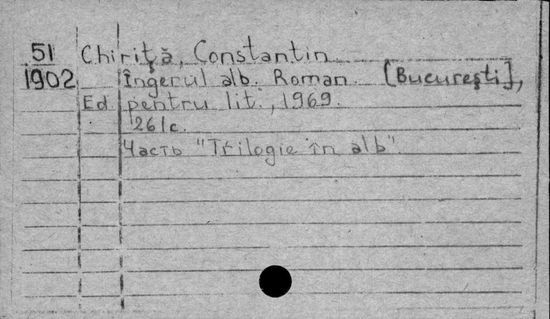 51 Chiriţă, Constantin
1902 Îngerul alb. Roman. [Bucureşti],
Ed. pentru lit., 1969.
261c.
Часть "Trilogie în alb".